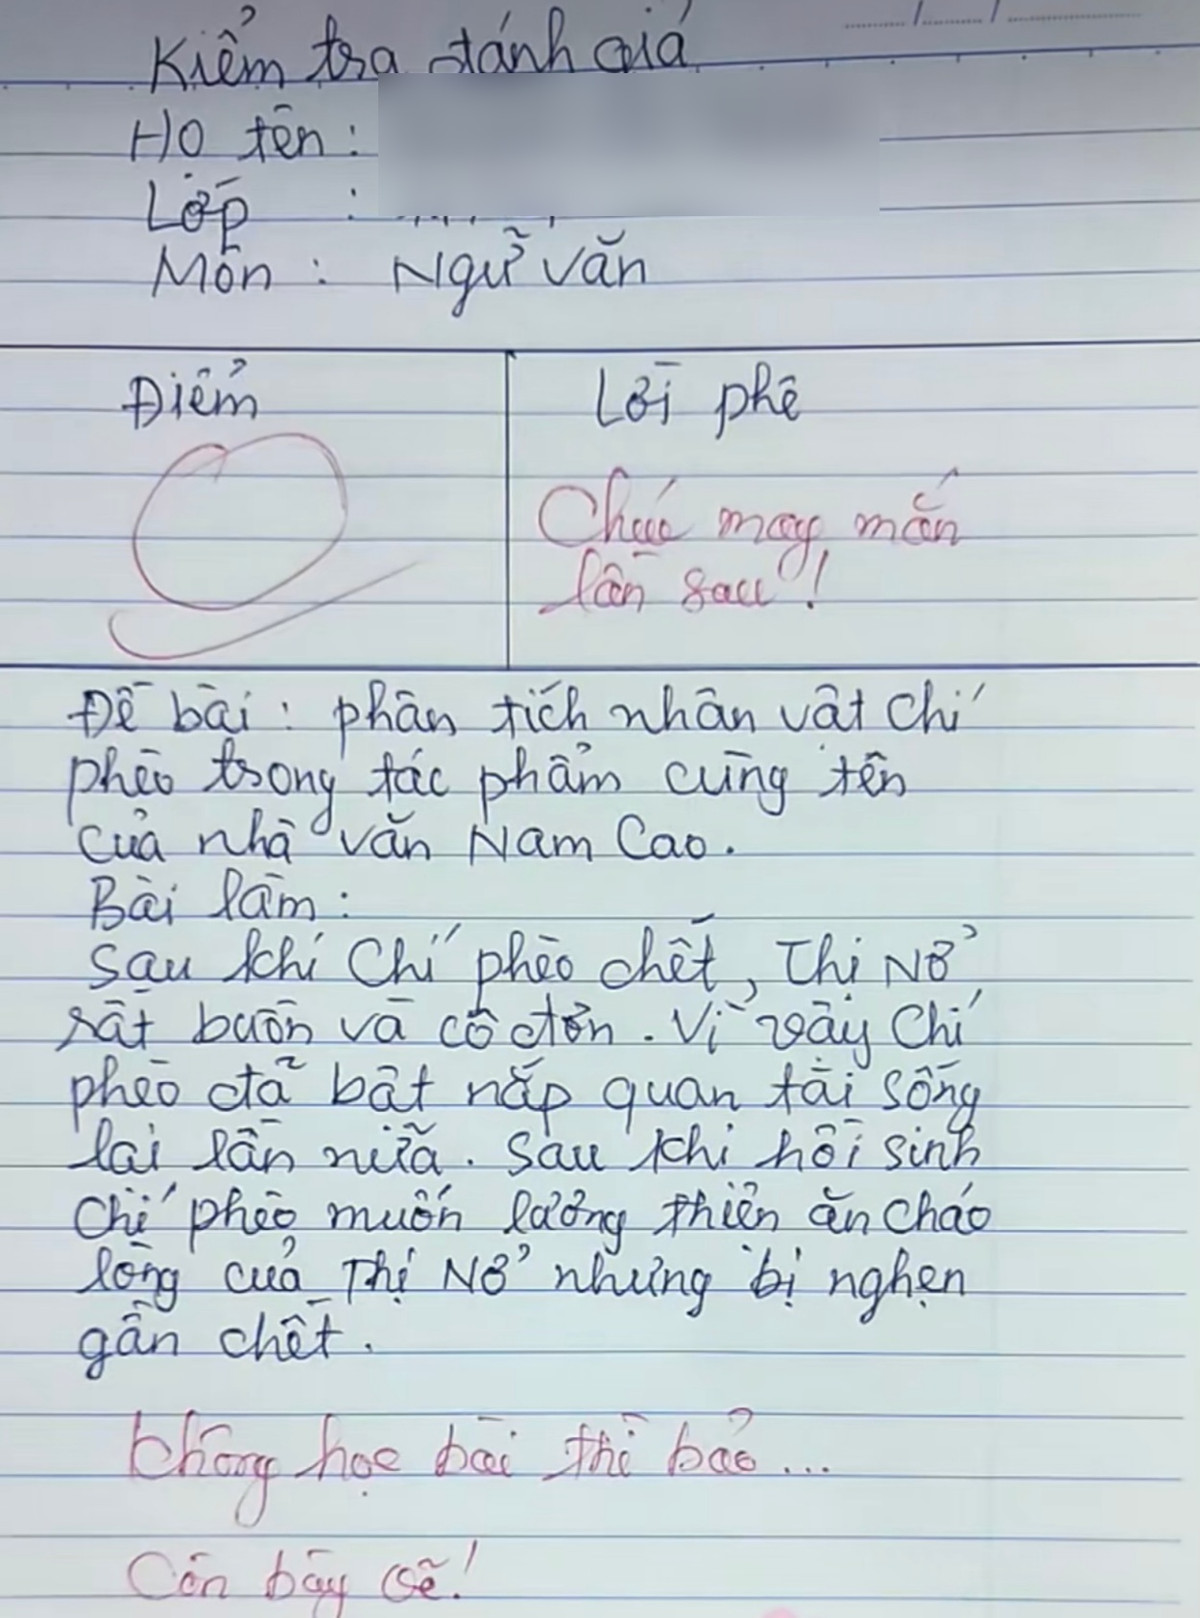 Kiểm tra đánh giá
Họ tên :
Lớp :
Môn : Ngữ văn
Điểm
Lời phê
0
Chúc may mắn
lần sau !
Đề bài : phân tích nhân vật Chí
phèo trong tác phẩm cùng tên
của nhà văn Nam Cao.
Bài làm :
Sau khi Chí phèo chết, Thị Nở
rất buồn và cô đơn. Vì vậy Chí
phèo đã bật nắp quan tài sống
lại lần nữa. Sau khi hồi sinh
Chí phèo muốn lương thiện ăn cháo
lòng của Thị Nở nhưng bị nghẹn
gần chết.
Không học bài thì bảo...
Còn bày vẽ!